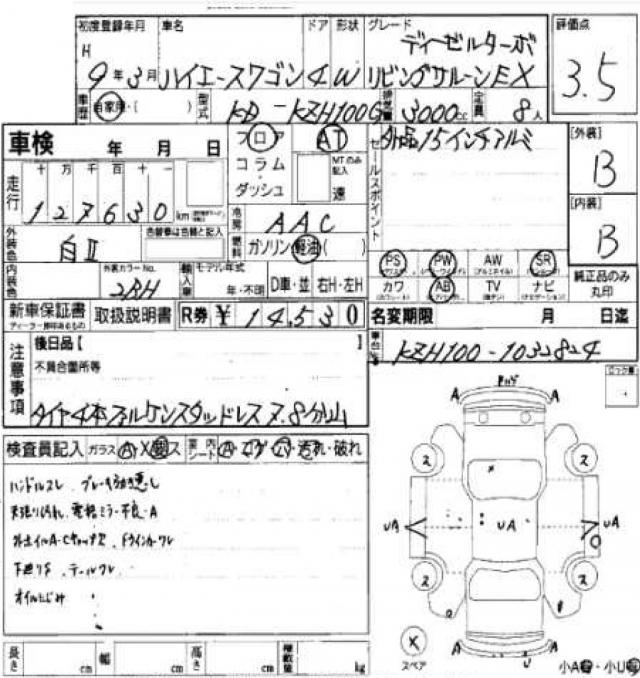 初度登録年月 車名 ドア 形状 グレード 評価点
H ディーゼルターボ
9年3月 ハイエースワゴン 4 W リビングサルーンEX 3.5
車歴 自家用・( ) 型式 KD-KZH100G 排気量 3000cc 定員 8人
車検 年 月 日
フロア AT 外品15インチアルミ [外装]
コラム・ MTのみ記入 B
ダッシュ 速 セールスポイント
走行 十 万 千 百 十 一
127630 km
[内装]
B
冷房 AAC
外装色 白Ⅱ 色替車は色替と記入
燃料 ガソリン・軽油・( )
PS PW AW SR
カワ AB TV ナビ
純正品のみ丸印
内装色 外装カラーNo. 2RH 輸入車 モデル年式 年・不明 D車・並 右H・左H
新車保証書 取扱説明書 R券 ¥ 14,530
名変期限 月 日迄
注意事項 後日品【 】
不具合箇所等
車台No. KZH100-1032824
タイヤ4本ファルケンスタッドレス 7.8分山
検査員記入 ガラス A・X・ス 室内シート A・コゲ・汚れ・破れ
ハンドルスレ
電格ミラー不良・A
下廻りサ テールワレ
オイルにじみ
A A
2 2
UA UA UA
2 2
X
スペア
A U A
長さ cm 幅 cm 高さ cm 積載量 kg
小A・小U